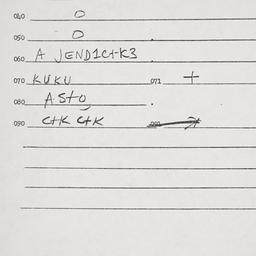 040 O
050 O
060 A JEND1CHK3
070 KUKU 071 +
080 ASTO
090 CHK CHK